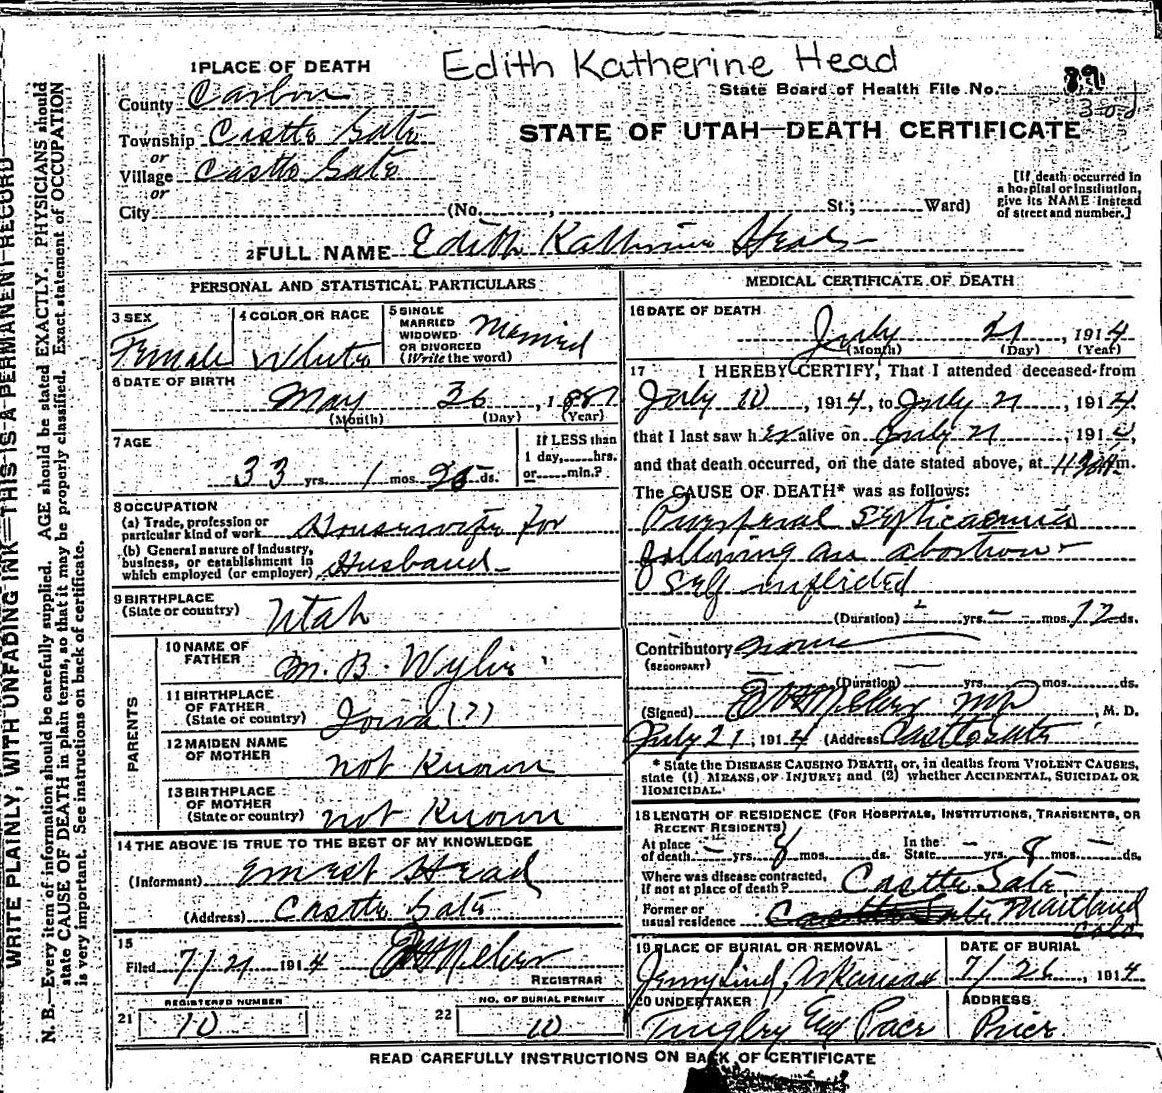 Edith Katherine Head
1 PLACE OF DEATH
State Board of Health File No. 89
302
County Carbon
Township Castle Gate
or
Village Castle Gate
or
City (No. , St.; Ward)
STATE OF UTAH—DEATH CERTIFICATE
[If death occurred in
a hospital or institution,
give its NAME instead
of street and number.]
2 FULL NAME Edith Katherine Head
WRITE PLAINLY, WITH UNFADING INK—THIS IS A PERMANENT RECORD
N. B.—Every item of information should be carefully supplied. AGE should be stated EXACTLY. PHYSICIANS should
state CAUSE OF DEATH in plain terms, so that it may be properly classified. Exact statement of OCCUPATION
is very important. See instructions on back of certificate.
PERSONAL AND STATISTICAL PARTICULARS
3 SEX
Female
4 COLOR OR RACE
White
5 SINGLE
MARRIED
WIDOWED
OR DIVORCED
(Write the word)
Married
6 DATE OF BIRTH
May 26, 188
(Month) (Day) (Year)
7 AGE
33 yrs. 1 mos. 25 ds.
If LESS than
1 day, hrs.
or min.?
8 OCCUPATION
(a) Trade, profession or
particular kind of work Housewife for
(b) General nature of industry,
business, or establishment in
which employed (or employer) Husband
9 BIRTHPLACE
(State or country) Utah
PARENTS
10 NAME OF
FATHER M. B. Wylie
11 BIRTHPLACE
OF FATHER
(State or country) Iowa (?)
12 MAIDEN NAME
OF MOTHER not Known
13 BIRTHPLACE
OF MOTHER
(State or country) not Known
14 THE ABOVE IS TRUE TO THE BEST OF MY KNOWLEDGE
(Informant) Ernest Head
(Address) Castle Gate
15
Filed 7/21 1914
REGISTRAR
REGISTERED NUMBER
21 10
NO. OF BURIAL PERMIT
22 10
MEDICAL CERTIFICATE OF DEATH
16 DATE OF DEATH
July 21, 1914
(Month) (Day) (Year)
17 I HEREBY CERTIFY, That I attended deceased from
July 10, 1914, to July 21, 1914,
that I last saw her alive on July 21, 1914,
and that death occurred, on the date stated above, at 11 30 m.
The CAUSE OF DEATH* was as follows:
Puerperal Septicaemia
following an abortion
Self inflicted
(Duration) yrs. mos. 12 ds.
Contributory none
(SECONDARY)
(Duration) yrs. mos. ds.
(Signed) M. D.
July 21, 1914 (Address) Castle Gate
* State the DISEASE CAUSING DEATH, or, in deaths from VIOLENT CAUSES,
state (1) MEANS OF INJURY; and (2) whether ACCIDENTAL, SUICIDAL OR
HOMICIDAL.
18 LENGTH OF RESIDENCE (FOR HOSPITALS, INSTITUTIONS, TRANSIENTS, OR
RECENT RESIDENTS)
At place
of death — yrs. 8 mos. ds.
In the
State — yrs. 8 mos. — ds.
Where was disease contracted,
if not at place of death? Castle Gate
Former or
usual residence Castle Gate Maitland
Colo
19 PLACE OF BURIAL OR REMOVAL
Jenny Lind, Arkansas
DATE OF BURIAL
7/26, 1914
20 UNDERTAKER
Pace
ADDRESS
Price
READ CAREFULLY INSTRUCTIONS ON BACK OF CERTIFICATE